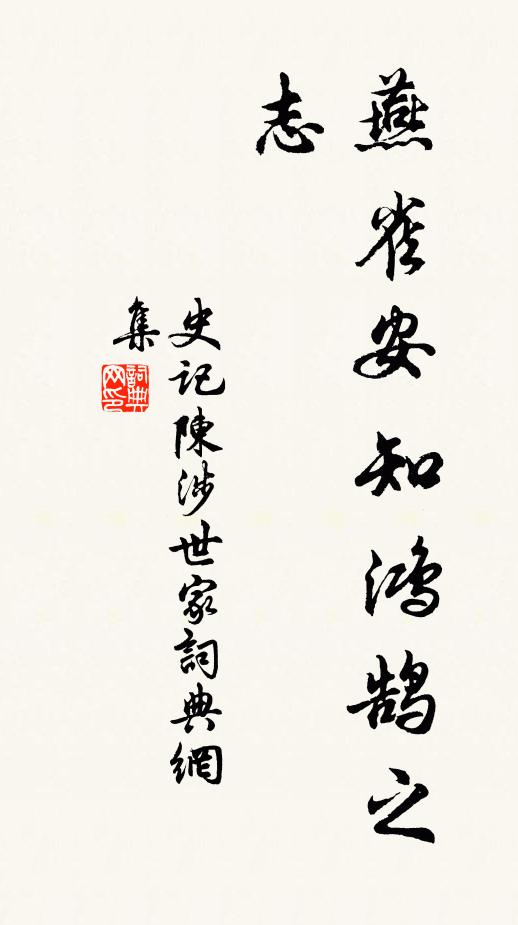 燕雀安知鴻鵠之
志
史記陳涉世家詞典網
集
詞典
网印